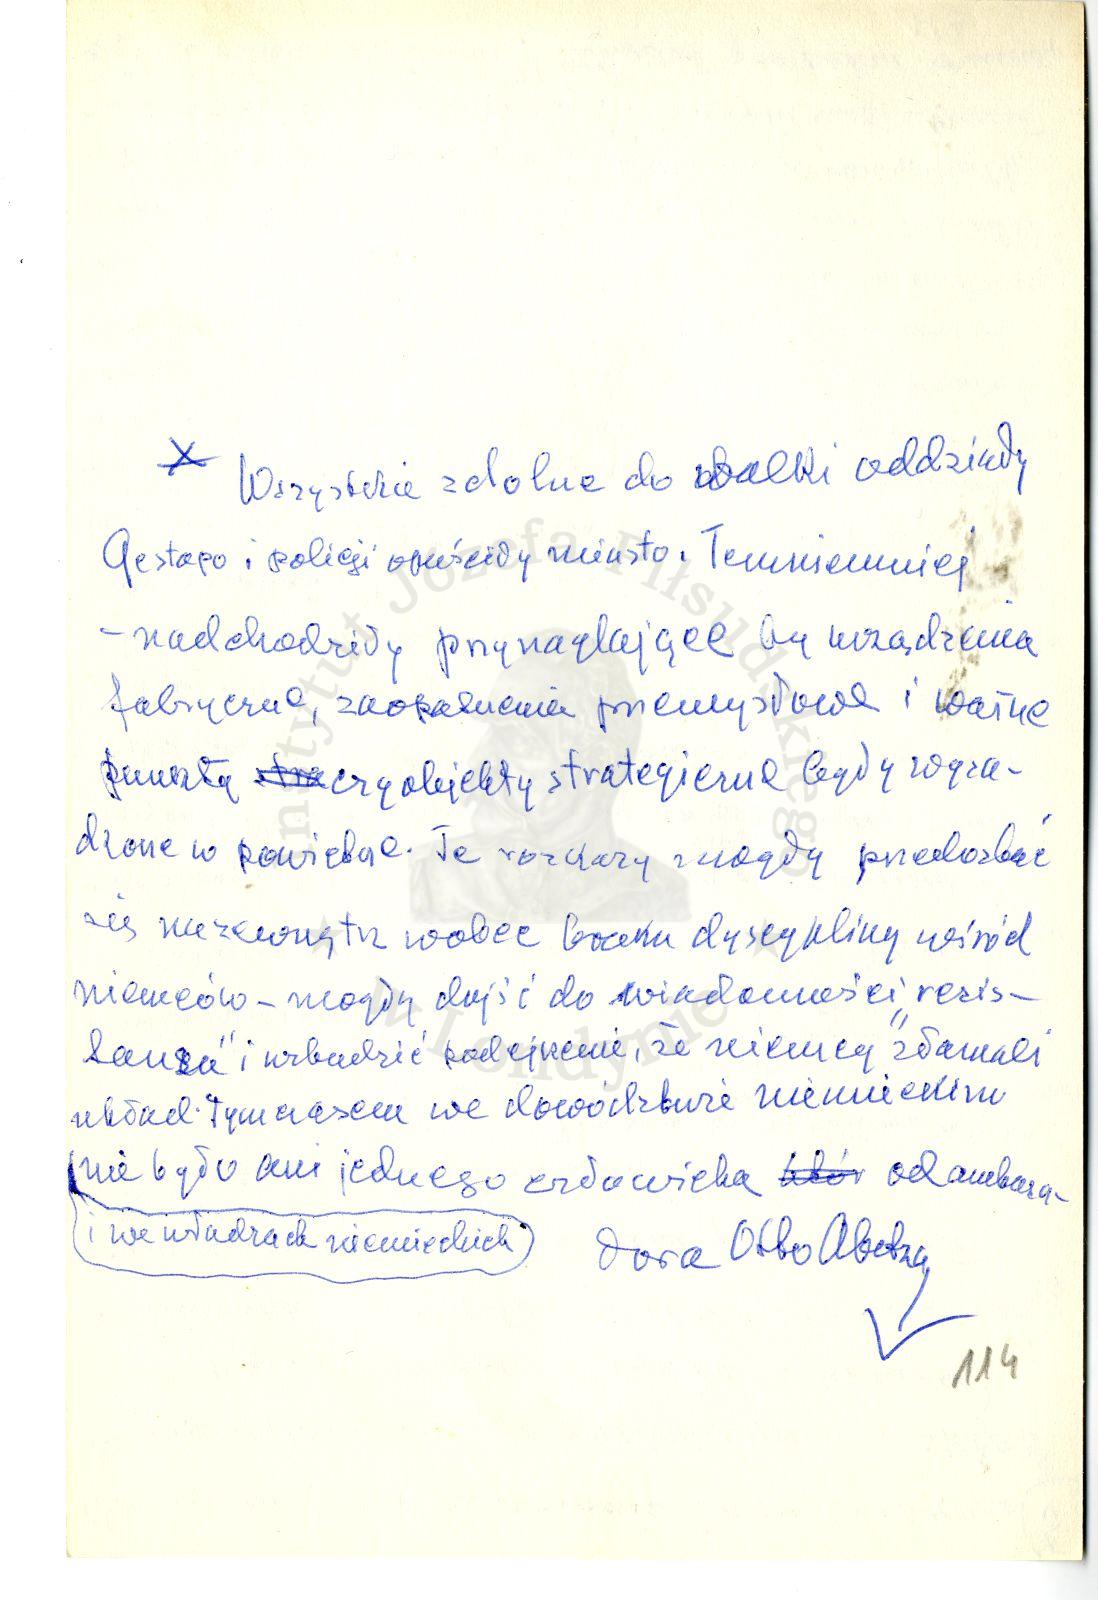 x Wszystkie zdolne do walki oddziały
Gestapo i policji opuściły miasto. Temniemniej
– nadchodziły przynaglające by urządzenia
fabryczne, zaopatrzenia przemysłowe i ważne
punkty czy objekty strategiczne były wysa-
dzone w powietrze. Te rozkazy mogły przedostać
się nazewnątrz wobec braku dyscypliny wśród
niemców – mogły dojść do wiadomości „rezis-
tansu" i wzbudzić podejrzenie, że niemcy złamali
układ. Tymczasem we dowództwie niemieckim
nie było ani jednego człowieka od ambasa-
i we władzach niemieckich
dora Otto Abetza
114
Instytut Józefa Piłsudskiego
w Londynie